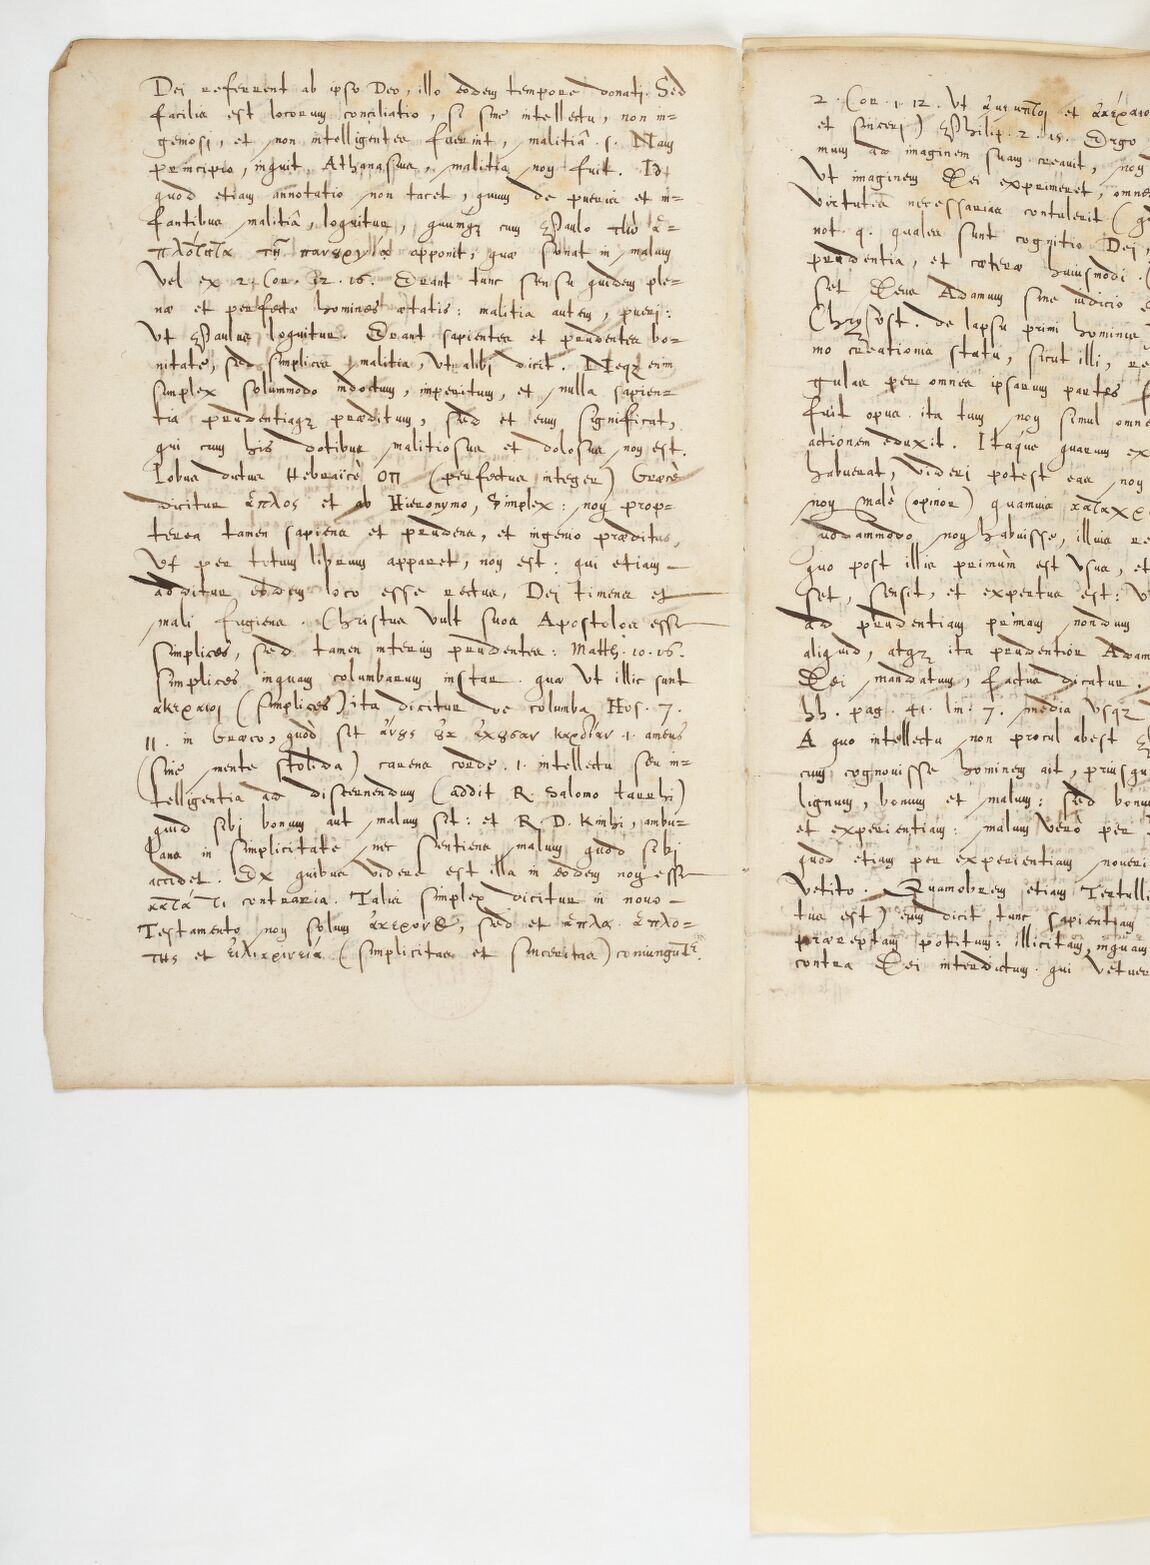 Dei referrent ab ipso Deo, illo eodem tempore donati. Sed
facilis est locorum conciliatio, si sine intellectu, non in=
geniosi, et non intelligentes fuerint, malitiâ. s. Nam
principio, inquit Athanasius, malitia non fuit. Id
quod etiam annotatio non tacet, quum de pueris et in=
fantibus malitiâ, loquitur, quumq; cum Paulo
apponit, quæ sonat in malum
Vel ex 2 Cor. 12. 16. Erant tunc sensu quidem ple=
næ et perfectæ homines ætatis: malitia autem, pueri:
Ut Paulus loquitur. Erant sapientes et prudentes bo=
nitate, sed simplices malitia, Ut alibi dicit. Neq; enim
simplex solummodo indoctum, imperitum, et nulla sapien=
tia prudentiaq; præditum, sed et eum significat,
qui cum his dotibus malitiosus et dolosus non est.
Iobus dictus Hebraïcè תם (perfectus integer) Græcè
dicitur ἁπλος et ab Hieronymo, Simplex: non prop=
terea tamen sapiens et prudens, et ingenio præditus,
Ut per totum librum apparet, non est: qui etiam
additur eodem loco esse rectus, Dei timens et
mali fugiens. Christus vult suos Apostolos esse
simplices, sed tamen interim prudentes: Matth. 10. 16.
simplices inquam columbarum instar. quæ Ut illic sunt
ἀκεραιοι (simplices) ita dicitur de columba Hos. 7.
11. in Græco, quòd sit ἄνους οὐκ ἔχουσαν καρδίαν .i. amens
(sine mente stolida) carens corde .i. intellectu seu in=
telligentia ad discernendum (addit R. Salomo Iarrhi)
quid sibi bonum aut malum sit: et R. D. Kimhi, ambu=
lans in simplicitate nec sentiens malum quod sibi
accidet. Ex quibus videre est illa in eodem non esse
κατά τι contraria. Talis simplex dicitur in nouo
Testamento non solum sed et ἁπλος ἁπλο=
της et (simplicitas et sinceritas) coniungũtr.
2. Cor. 1. 12. Ut et
et sinceri) Philip. 2. 15. Ergo
mum ad imaginem suam creauit, non
Ut imaginem Dei exprimeret, omnes
Virtutes necessarias contulerit
not. q. quales sunt cognitio Dei,
prudentia, et cæteræ huiusmodi.
set Deus Adamum sine iudicio
Chrysost. de lapsu primi hominis
mo creationis statu, sicut illi,
gulas per omnes ipsarum partes
fuit opus. ita tum non simul omne
actionem eduxit. Itaque quarum
habuerat, videri potest eas non
non malè (opinor) quamuis
quodammodo non habuisse, illius
quo post illis primùm est Usus, et
set, sensit, et expertus est:
ad prudentiam primam nondum
aliquid, atq; ita prudentior Adam
Dei mandatum, factus dicatur.
hh. pag. 41. lin. 7. media Usq;
A quo intellectu non procul abest
cum cognouisse hominem ait, priusqu
lignum, bonum et malum: sed bonu
et experientiam: malum verò per
quod etiam per experientiam noueri
Vetito. Quamobrem etiam Tertulli
tus est) eum dicit tunc sapientiam
præreptam potitum: illicitam, inquam
contra Dei interdictum. qui vetuer